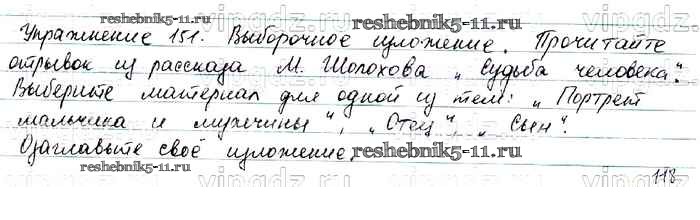 reshebnik5-11.ru
Упражнение 151. Выборочное изложение. Прочитайте
отрывок из рассказа М. Шолохова „Судьба человека“.
Выберите материал для одной из тем: „Портрет
мальчика и мужчины“, „Отец“, „Сын“.
Озаглавьте своё изложение.
reshebnik5-11.ru
reshebnik5-11.ru
118
vipgdz.ru
vipgdz.ru
vipgdz.ru
vipgdz.ru